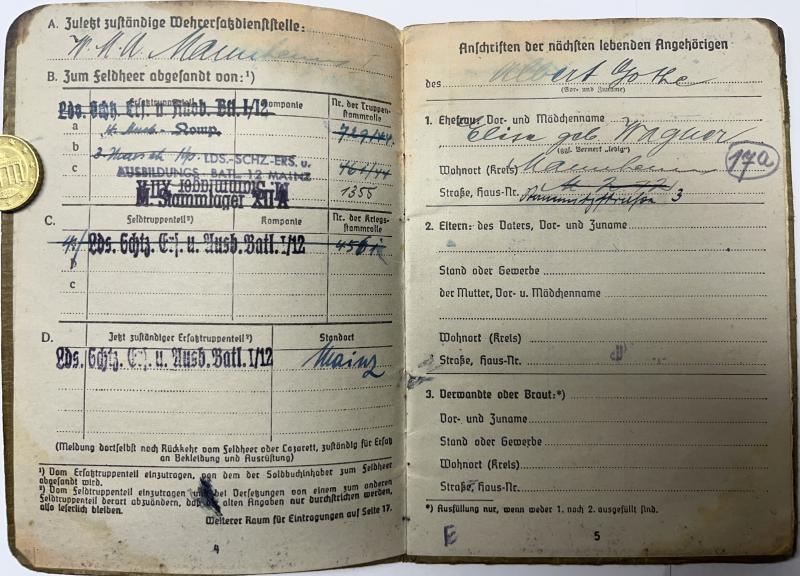 A. Zuletzt zuständige Wehrersatzdienststelle:
W. M. A. Mannheim
B. Zum Feldheer abgesandt von:¹)
Ersatztruppenteil Kompanie Nr. der Truppenstammrolle
Lds. Schtz. Ers. u. Ausb. Btl. I/12
a Komp.
b
3 LDS.-SCHZ-ERS. u.
c AUSBILDUNGS-BATL. 12 MAINZ
1355
M-Stammlager XII A
M-Stammlager XII A
C. Feldtruppenteil²) Kompanie Nr. der Kriegsstammrolle
a Lds. Schtz. Ers. u. Ausb. Batl. I/12 456
b
c
D. Jetzt zuständiger Ersatztruppenteil²) Standort
Lds. Schtz. Ers. u. Ausb. Batl. I/12 Mainz
(Meldung dortselbst nach Rückkehr vom Feldheer oder Lazarett, zuständig für Ersatz
an Bekleidung und Ausrüstung)
¹) Vom Ersatztruppenteil einzutragen, von dem der Soldbuchinhaber zum Feldheer
abgesandt wird.
²) Vom Feldtruppenteil einzutragen und bei Versetzungen von einem zum anderen
Feldtruppenteil derart abzuändern, daß die alten Angaben nur durchstrichen werden,
also leserlich bleiben.
Weiterer Raum für Eintragungen auf Seite 17.
4
Anschriften der nächsten lebenden Angehörigen
des Albert Gothe
(Vor- und Zuname)
1. Ehefrau: Vor- und Mädchenname
Elise geb. Wagner
(ggf. Vermerk „ledig")
Wohnort (Kreis) Mannheim
17a
Straße, Haus-Nr.
3
2. Eltern: des Vaters, Vor- und Zuname
Stand oder Gewerbe
der Mutter, Vor- u. Mädchenname
Wohnort (Kreis)
Straße, Haus-Nr.
3. Verwandte oder Braut:*)
Vor- und Zuname
Stand oder Gewerbe
Wohnort (Kreis)
Straße, Haus-Nr.
*) Ausfüllung nur, wenn weder 1. noch 2. ausgefüllt sind.
E
5